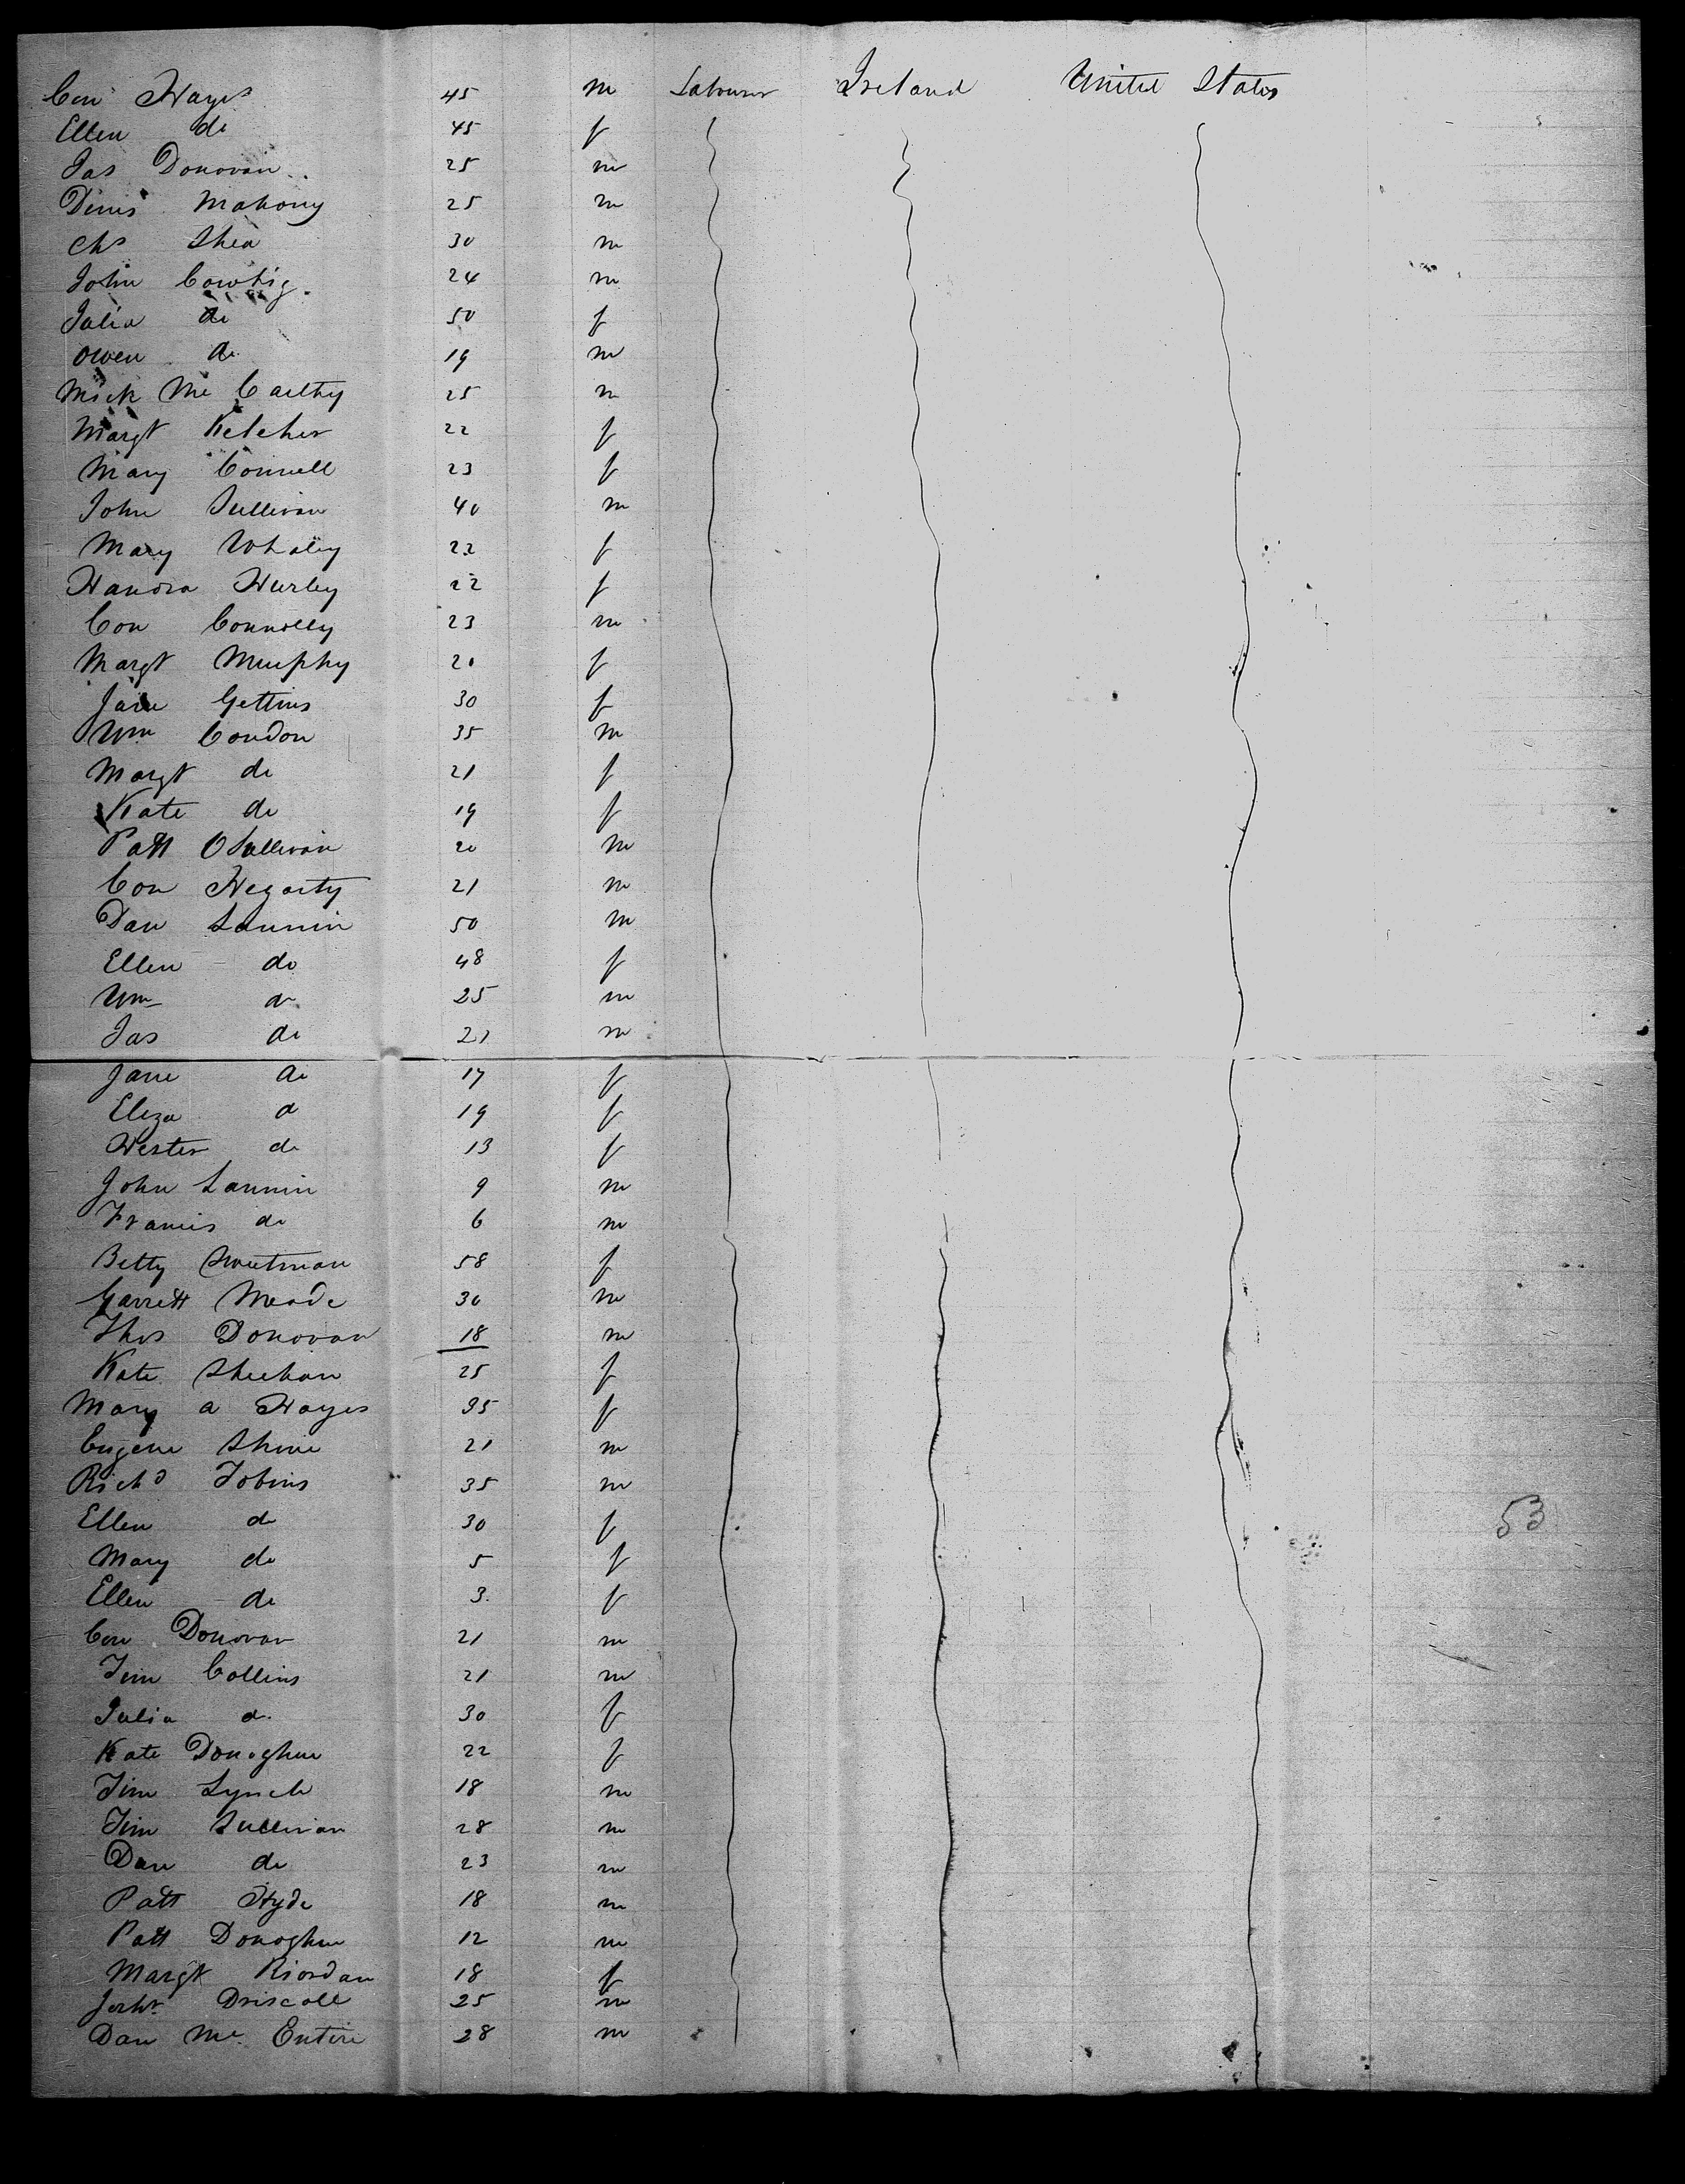 Con Hayes 45 m Labourer Ireland United States
Ellen do 45 f
Jas Donovan 25 m
Denis Mahony 25 m
Chs Shea 30 m
John Cowhig 24 m
Julia do 50 f
Owen do 19 m
Mick Mc Carthy 25 m
Margt Kelcher 22 f
Mary Connell 23 f
John Sullivan 40 m
Mary Whaley 22 f
Hanora Hurley 22 f
Con Connolly 23 m
Margt Murphy 20 f
Jane Gettins 30 f
Wm Condon 35 m
Margt do 21 f
Kate do 19 f
Patt O Sullivan 20 m
Con Hegarty 21 m
Dan Lannin 50 m
Ellen do 48 f
Wm do 25 m
Jas do 21 m
Jane do 17 f
Eliza do 19 f
Hester do 13 f
John Lannin 9 m
Francis do 6 m
Betty Sweetman 58 f
Garrett Meade 30 m
Thos Donovan 18 m
Kate Sheehan 25 f
Mary A Hayes 35 f
Eugene Shine 21 m
Richd Tobins 35 m
Ellen do 30 f 53
Mary do 5 f
Ellen do 3 f
Con Donovan 21 m
Tim Collins 21 m
Julia do 30 f
Kate Donoghue 22 f
Tim Lynch 18 m
Tim Sullivan 28 m
Dan do 23 m
Patt Hyde 18 m
Patt Donoghue 12 m
Margt Riordan 18 f
Driscoll 25 m
Dan Mc Entire 28 m